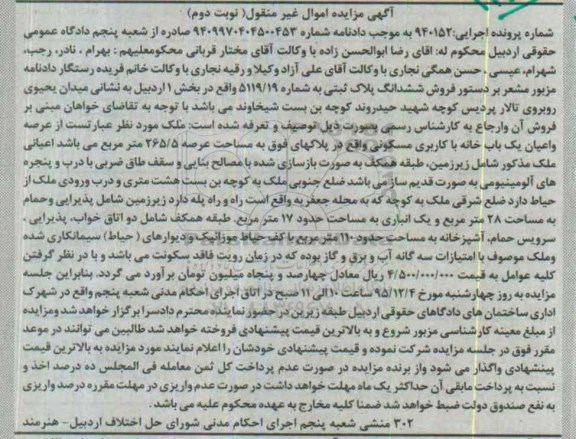 آگهی مزایده اموال غیر منقول( نوبت دوم)
شماره پرونده اجرایی: ۹۴۰۱۵۲ به موجب دادنامه شماره ۹۴۰۹۹۷۰۴۰۴۵۰۰۴۵۳ صادره از شعبه پنجم دادگاه عمومی
حقوقی اردبیل محکوم له: اقای رضا ابوالحسن زاده با وکالت آقای مختار قربانی محکوم علیهم : بهرام ، نادر، رجب،
شهرام، عیسی ، حسن همگی نجاری با وکالت آقای علی آزاد وکیلا و رقیه نجاری با وکالت خانم فریده رستگار دادنامه
مزبور مشعر بر دستور فروش ششدانگ پلاک ثبتی به شماره ۵۱۱۹/۱۹ واقع در بخش ۱ اردبیل به نشانی میدان یحیوی
روبروی تالار پردیس کوچه شهید حیدروند کوچه بن بست شیخاوند می باشد با توجه به تقاضای خواهان مبنی بر
فروش آن وارجاع به کارشناس رسمی بصورت ذیل توصیف و تعرفه شده است: ملک مورد نظر عبارتست از عرصه
واعیان یک باب خانه با کاربری مسکونی واقع در پلاکهای فوق به مساحت عرصه ۲۶۵/۵ متر مربع می باشد اعیانی
ملک مذکور شامل زیرزمین، طبقه همکف به صورت بازسازی شده با مصالح بنایی و سقف طاق ضربی با درب و پنجره
های آلومینیومی به صورت قدیم ساز می باشد ضلع جنوبی ملک به کوچه بن بست هشت متری و درب ورودی ملک از
حیاط دارد ضلع شرقی ملک به کوچه که به محله جعفریه واقع است راه و راه پله دارد زیرزمین شامل پذیرایی وحمام
به مساحت ۲۸ متر مربع و یک انباری به مساحت حدود ۱۷ متر مربع. طبقه همکف شامل دو اتاق خواب، پذیرایی ،
سرویس حمام، آشپزخانه به مساحت حدود ۱۱۰ متر مربع با کف حیاط موزائیک و دیوارهای ( حیاط) سیمانکاری شده
وملک موصوف با امتیازات سه گانه آب و برق و گاز بوده که در زمان رویت فاقد سکونت می باشد و با در نظر گرفتن
کلیه عوامل به قیمت ۴/۵۰۰/۰۰۰/۰۰۰ ریال معادل چهارصد و پنجاه میلیون تومان برآورد می گردد. بنابراین جلسه
مزایده به روز چهارشنبه مورخ ۹۵/۱۲/۴ ساعت ۱۰ الی ۱۱ صبح در اتاق اجرای احکام مدنی شعبه پنجم واقع در شهرک
اداری ساختمان های دادگاهای حقوقی اردبیل طبقه زیرین در حضور نماینده محترم دادسرا برگزار خواهد شد ومزایده
از مبلغ معینه کارشناسی مزبور شروع و به بالاترین قیمت پیشنهادی فروخته خواهد شد طالبین می توانند در موعد
مقرر فوق در جلسه مزایده شرکت نموده و قیمت پیشنهادی خودشان را اعلام نمایند مورد مزایده به بالاترین قیمت
پیشنهادی واگذار می شود واز برنده مزایده در صورت عدم پرداخت کل ثمن معامله فی المجلس ده درصد اخذ و
نسبت به پرداخت مابقی آن حداکثر یک ماه مهلت خواهد داشت در صورت عدم واریزی در مهلت مقرره درصد واریزی
به نفع صندوق دولت ضبط خواهد شد ضمنا کلیه مخارج به عهده محکوم علیه می باشد.
۳۰۲ منشی شعبه پنجم اجرای احکام مدنی شورای حل اختلاف اردبیل- هنرمند